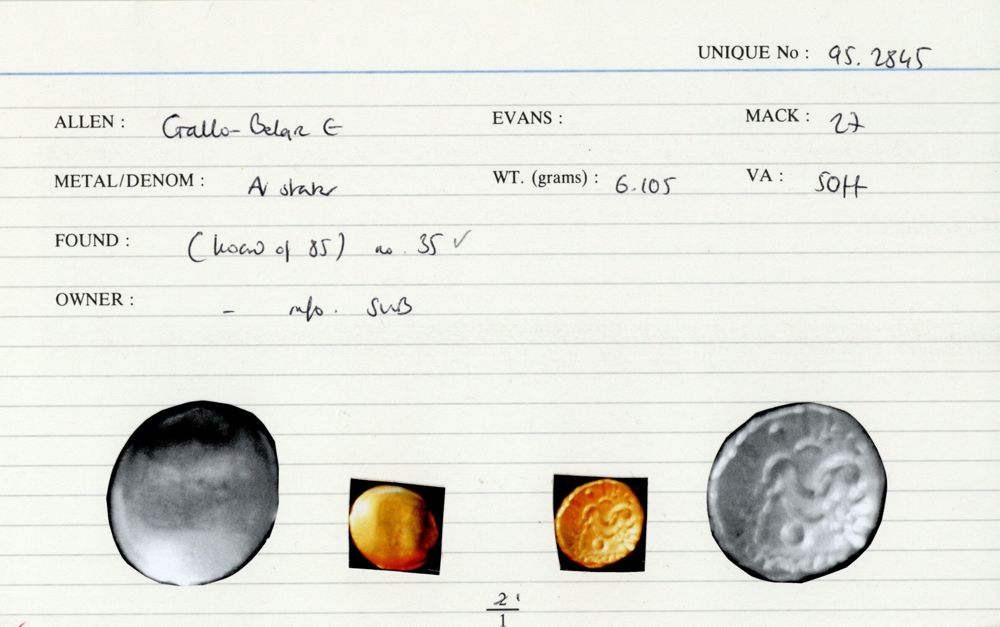 UNIQUE No : 95.2845
ALLEN : Gallo-Belgic E EVANS : MACK : 27
METAL/DENOM : AV stater WT. (grams) : 6.105 VA :
FOUND : (hoard of 85) no. 35 ✓
OWNER : - info. SUB
2
1